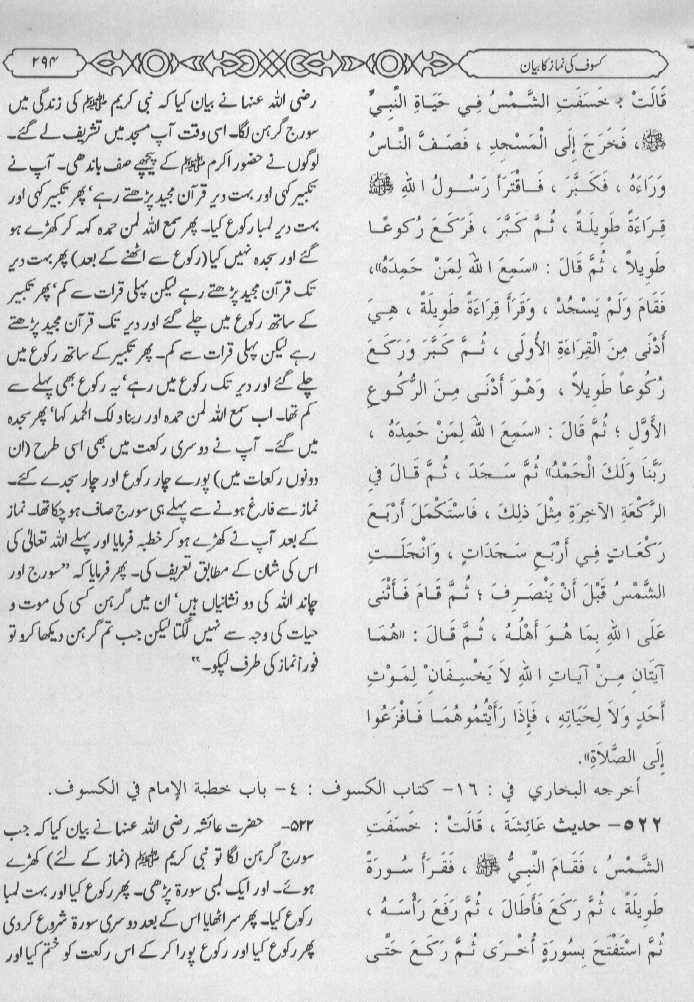 کسوف کی نماز کا بیان
۲۹۴
قَالَتْ : خَسَفَتِ الشَّمْسُ فِي حَيَاةِ النَّبِيِّ
ﷺ، فَخَرَجَ إِلَى الْمَسْجِدِ ، فَصَفَّ النَّاسُ
وَرَاءَهُ ، فَكَبَّرَ ، فَاقْتَرَأَ رَسُولُ اللهِ ﷺ
قِرَاءَةً طَوِيلَةً ، ثُمَّ كَبَّرَ ، فَرَكَعَ رُكُوعًا
طَوِيلاً ، ثُمَّ قَالَ : «سَمِعَ اللهُ لِمَنْ حَمِدَهُ»،
فَقَامَ وَلَمْ يَسْجُدْ ، وَقَرَأَ قِرَاءَةً طَوِيلَةً ، هِيَ
أَدْنَى مِنَ الْقِرَاءَةِ الأُولَى ، ثُمَّ كَبَّرَ وَرَكَعَ
رُكُوعاً طَوِيلاً ، وَهُوَ أَدْنَى مِنَ الرُّكُوعِ
الأَوَّلِ ؛ ثُمَّ قَالَ : «سَمِعَ اللهُ لِمَنْ حَمِدَهُ ،
رَبَّنَا وَلَكَ الْحَمْدُ» ثُمَّ سَجَدَ ، ثُمَّ قَالَ فِي
الرَّكْعَةِ الآخِرَةِ مِثْلَ ذلِكَ ، فَاسْتَكْمَلَ أَرْبَعَ
رَكَعَاتٍ فِي أَرْبَعِ سَجَدَاتٍ ، وَانْجَلَتِ
الشَّمْسُ قَبْلَ أَنْ يَنْصَرِفَ ؛ ثُمَّ قَامَ فَأَثْنَى
عَلَى اللهِ بِمَا هُوَ أَهْلُهُ ، ثُمَّ قَالَ : «هُمَا
آيَتَانِ مِنْ آيَاتِ اللهِ لاَ يَخْسِفَانِ لِمَوْتِ
أَحَدٍ وَلاَ لِحَيَاتِهِ ، فَإِذَا رَأَيْتُمُوهُمَا فَافْزَعُوا
إِلَى الصَّلاَةِ».
رضی اللہ عنہا نے بیان کیا کہ نبی کریم ﷺ کی زندگی میں
سورج گرہن لگا۔ اسی وقت آپ مسجد میں تشریف لے گئے۔
لوگوں نے حضور اکرم ﷺ کے پیچھے صف باندھی۔ آپ نے
تکبیر کہی اور بہت دیر قرآن مجید پڑھتے رہے‘ پھر تکبیر کہی اور
بہت دیر لمبا رکوع کیا۔ پھر سمع اللہ لمن حمدہ کہہ کر کھڑے ہو
گئے اور سجدہ نہیں کیا (رکوع سے اٹھنے کے بعد) پھر بہت دیر
تک قرآن مجید پڑھتے رہے لیکن پہلی قرات سے کم‘ پھر تکبیر
کے ساتھ رکوع میں چلے گئے اور دیر تک قرآن مجید پڑھتے
رہے لیکن پہلی قرات سے کم۔ پھر تکبیر کے ساتھ رکوع میں
چلے گئے اور دیر تک رکوع میں رہے‘ یہ رکوع بھی پہلے سے
کم تھا۔ اب سمع اللہ لمن حمدہ اور ربنا ولک الحمد کہا‘ پھر سجدہ
میں گئے۔ آپ نے دوسری رکعت میں بھی اسی طرح (ان
دونوں رکعات میں) پورے چار رکوع اور چار سجدے کئے۔
نماز سے فارغ ہونے سے پہلے ہی سورج صاف ہو چکا تھا۔ نماز
کے بعد آپ نے کھڑے ہو کر خطبہ فرمایا اور پہلے اللہ تعالیٰ کی
اس کی شان کے مطابق تعریف کی۔ پھر فرمایا کہ ”سورج اور
چاند اللہ کی دو نشانیاں ہیں‘ ان میں گرہن کسی کی موت و
حیات کی وجہ سے نہیں لگتا لیکن جب تم گرہن دیکھا کرو تو
فوراً نماز کی طرف لپکو۔“
أخرجه البخاري في : ١٦- كتاب الكسوف : ٤- باب خطبة الإمام في الكسوف.
٥٢٢- حديث عَائِشَةَ ، قَالَتْ : خَسَفَتِ
الشَّمْسُ ، فَقَامَ النَّبِيُّ ﷺ ، فَقَرَأَ سُورَةً
طَوِيلَةً ، ثُمَّ رَكَعَ فَأَطَالَ ، ثُمَّ رَفَعَ رَأْسَهُ ،
ثُمَّ اسْتَفْتَحَ بِسُورَةٍ أُخْرَى ثُمَّ رَكَعَ حَتَّى
۵۲۲- حضرت عائشہ رضی اللہ عنہا نے بیان کیا کہ جب
سورج گرہن لگا تو نبی کریم ﷺ (نماز کے لئے) کھڑے
ہوئے۔ اور ایک لمبی سورۃ پڑھی۔ پھر رکوع کیا اور بہت لمبا
رکوع کیا۔ پھر سر اٹھایا اس کے بعد دوسری سورۃ شروع کر دی
پھر رکوع کیا اور رکوع پورا کر کے اس رکعت کو ختم کیا اور